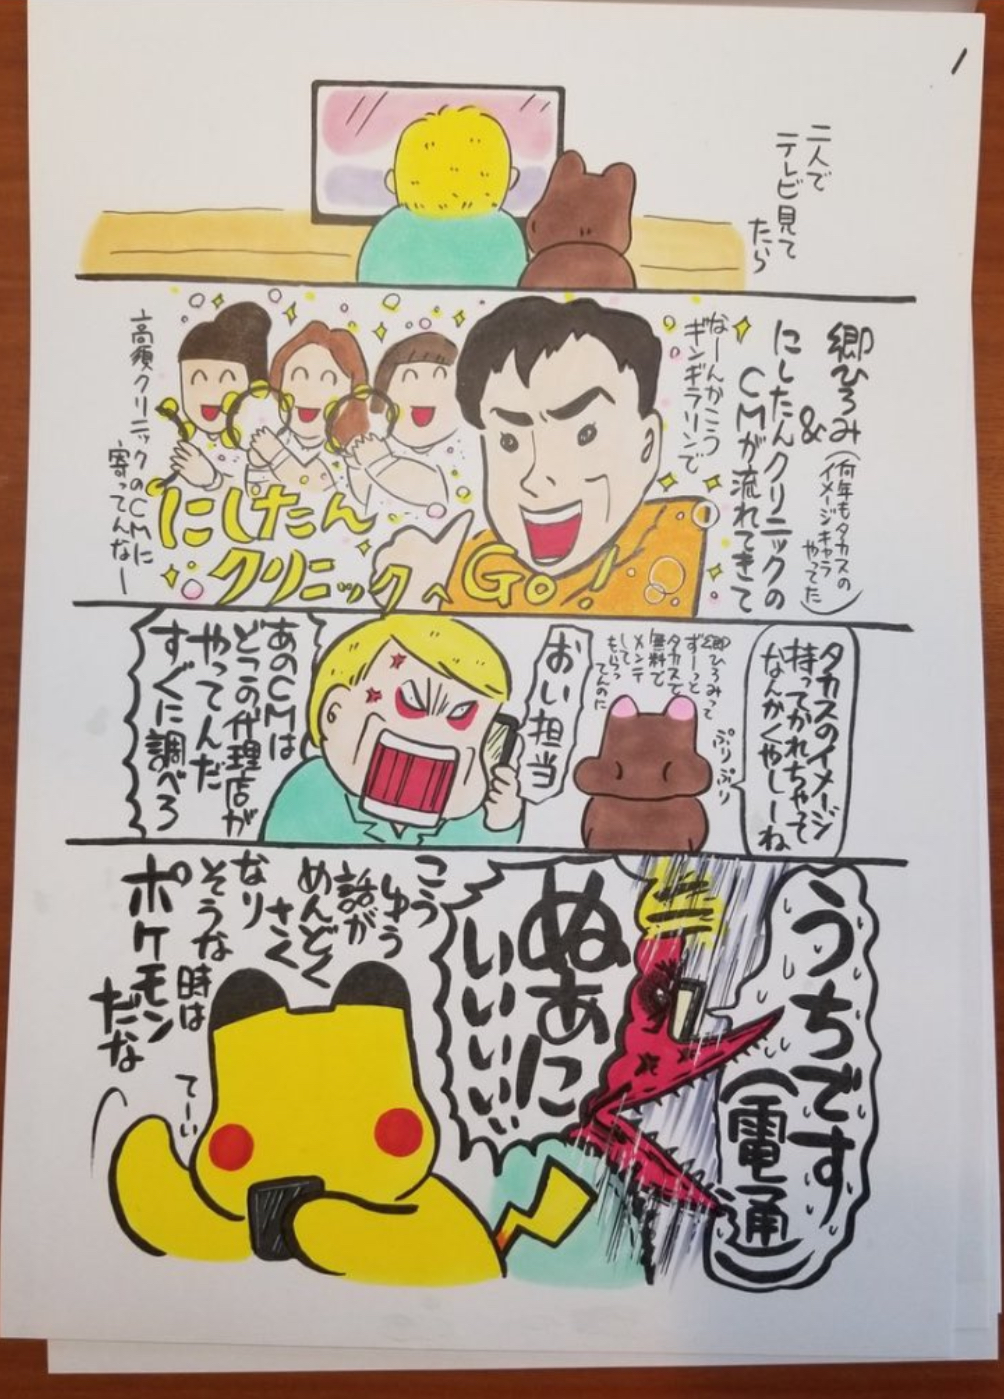 1
二人で
テレビ見て
たら
郷ひろみ
(何年もタカスの
イメージキャラ
やってた)
&
にしたんクリニックの
CMが流れてきて
なーんかこう
ギンギラリンで
にしたん
クリニックへGo!
高須クリニックのCMに
寄ってんなー
タカスのイメージ
持ってかれちゃって
なんかくやしーね
ぷりぷり
郷ひろみって
ずーっと
タカスで
無料で
メンテ
してもらっ
てんのに
おい担当
あのCMは
どこの代理店が
やってんだ
すぐに調べろ
うちです
(電通)
ぬぁに
いいいい
こう
ゆう
話が
めんどく
さく
なり
そうな
時は
ポケモン
だな
てーい